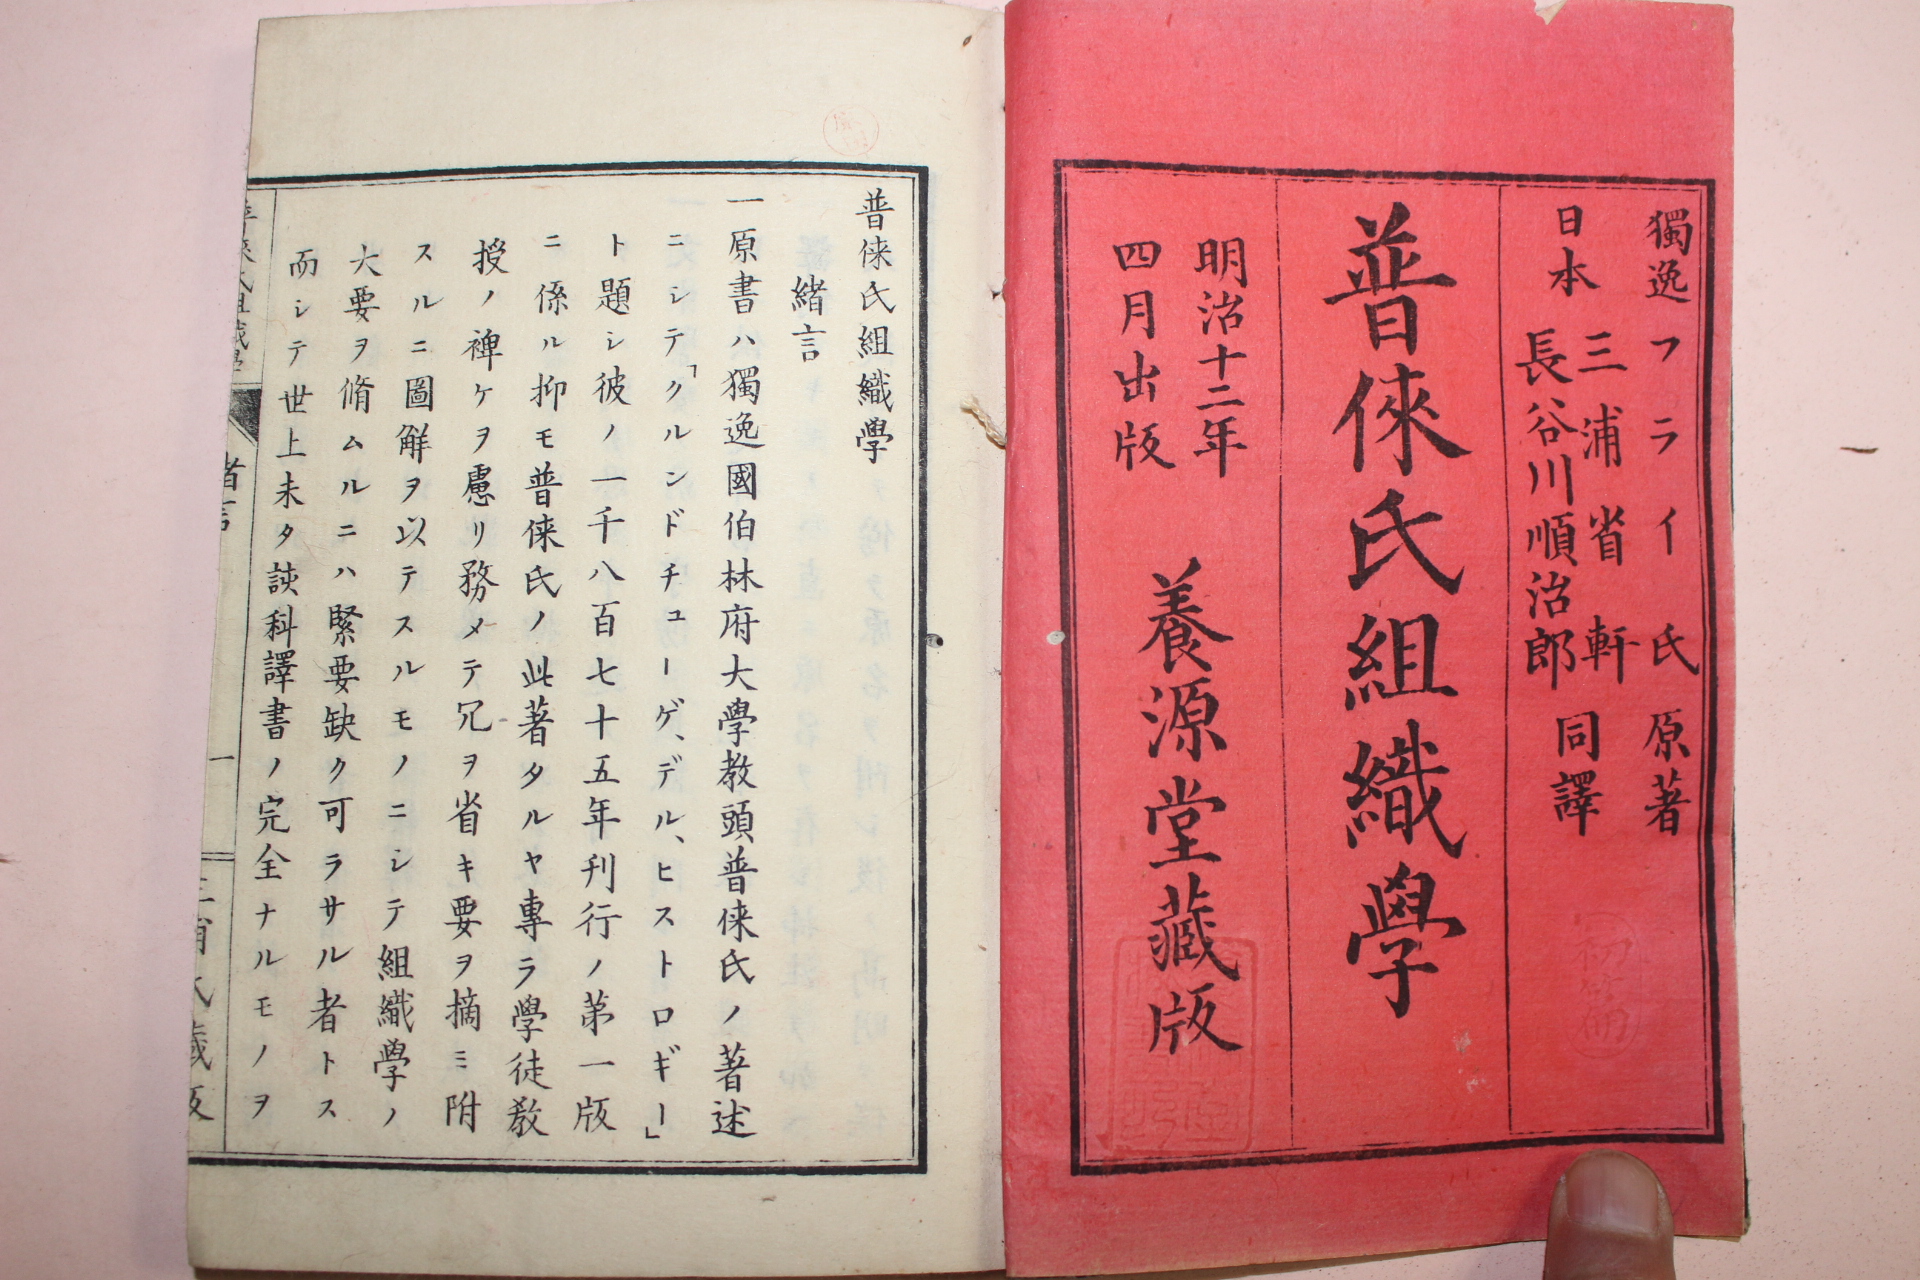 獨逸フライ氏原著
日本
三浦省軒
長谷川順治郎
同譯
普倈氏組織學
明治十二年
四月出版
養源堂藏版
普倈氏組織學
緒言
一原書ハ獨逸國伯林府大學教頭普倈氏ノ著述
ニシテ「クルンドチューゲ、デル、ヒストロギー」
ト題シ彼ノ一千八百七十五年刊行ノ第一版
ニ係ル抑モ普倈氏ノ此著タルヤ專ラ學徒教
授ノ裨ケヲ慮リ務メテ冗ヲ省キ要ヲ摘ミ附
スルニ圖解ヲ以テスルモノニシテ組織學ノ
大要ヲ脩ムルニハ緊要缺ク可ラサル者トス
而シテ世上未タ該科譯書ノ完全ナルモノヲ